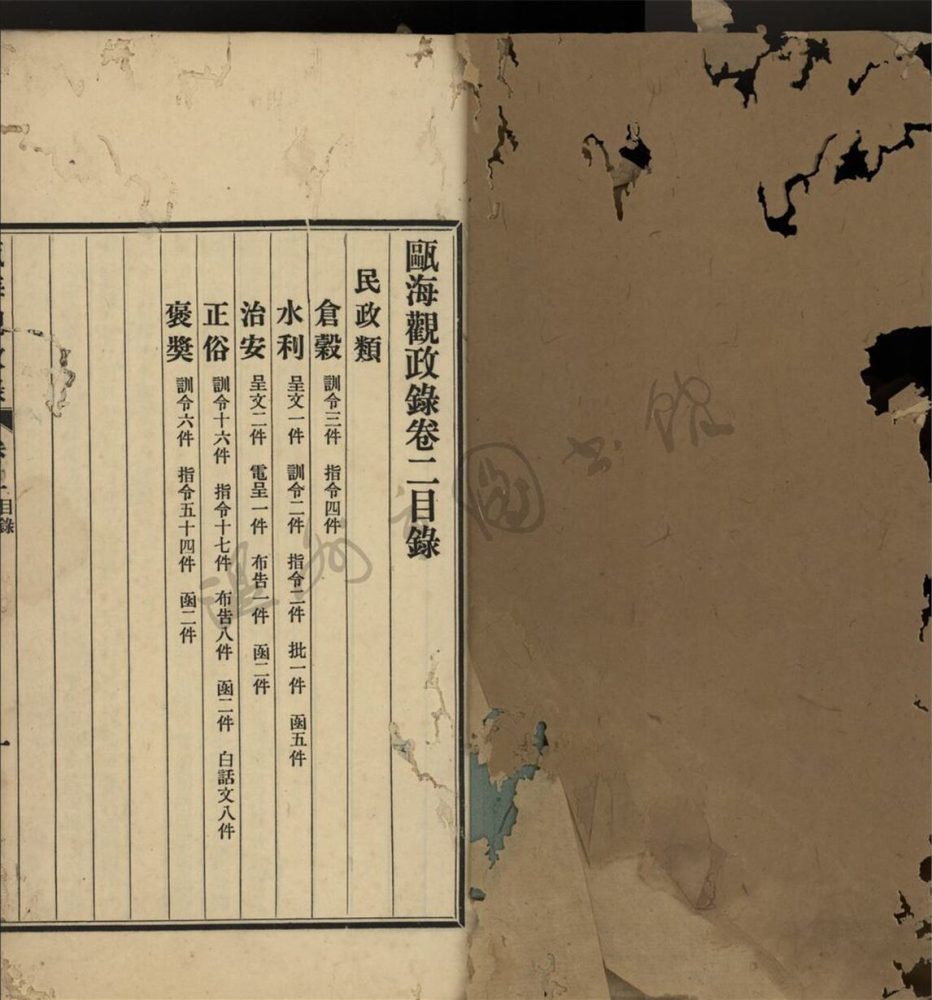 甌海觀政錄卷二目錄
民政類
倉穀 訓令三件 指令四件
水利 呈文一件 訓令二件 指令二件 批一件 函五件
治安 呈文二件 電呈一件 布告一件 函二件
正俗 訓令十六件 指令十七件 布告八件 函二件 白話文八件
褒獎 訓令六件 指令五十四件 函二件
目錄
一
圖書館